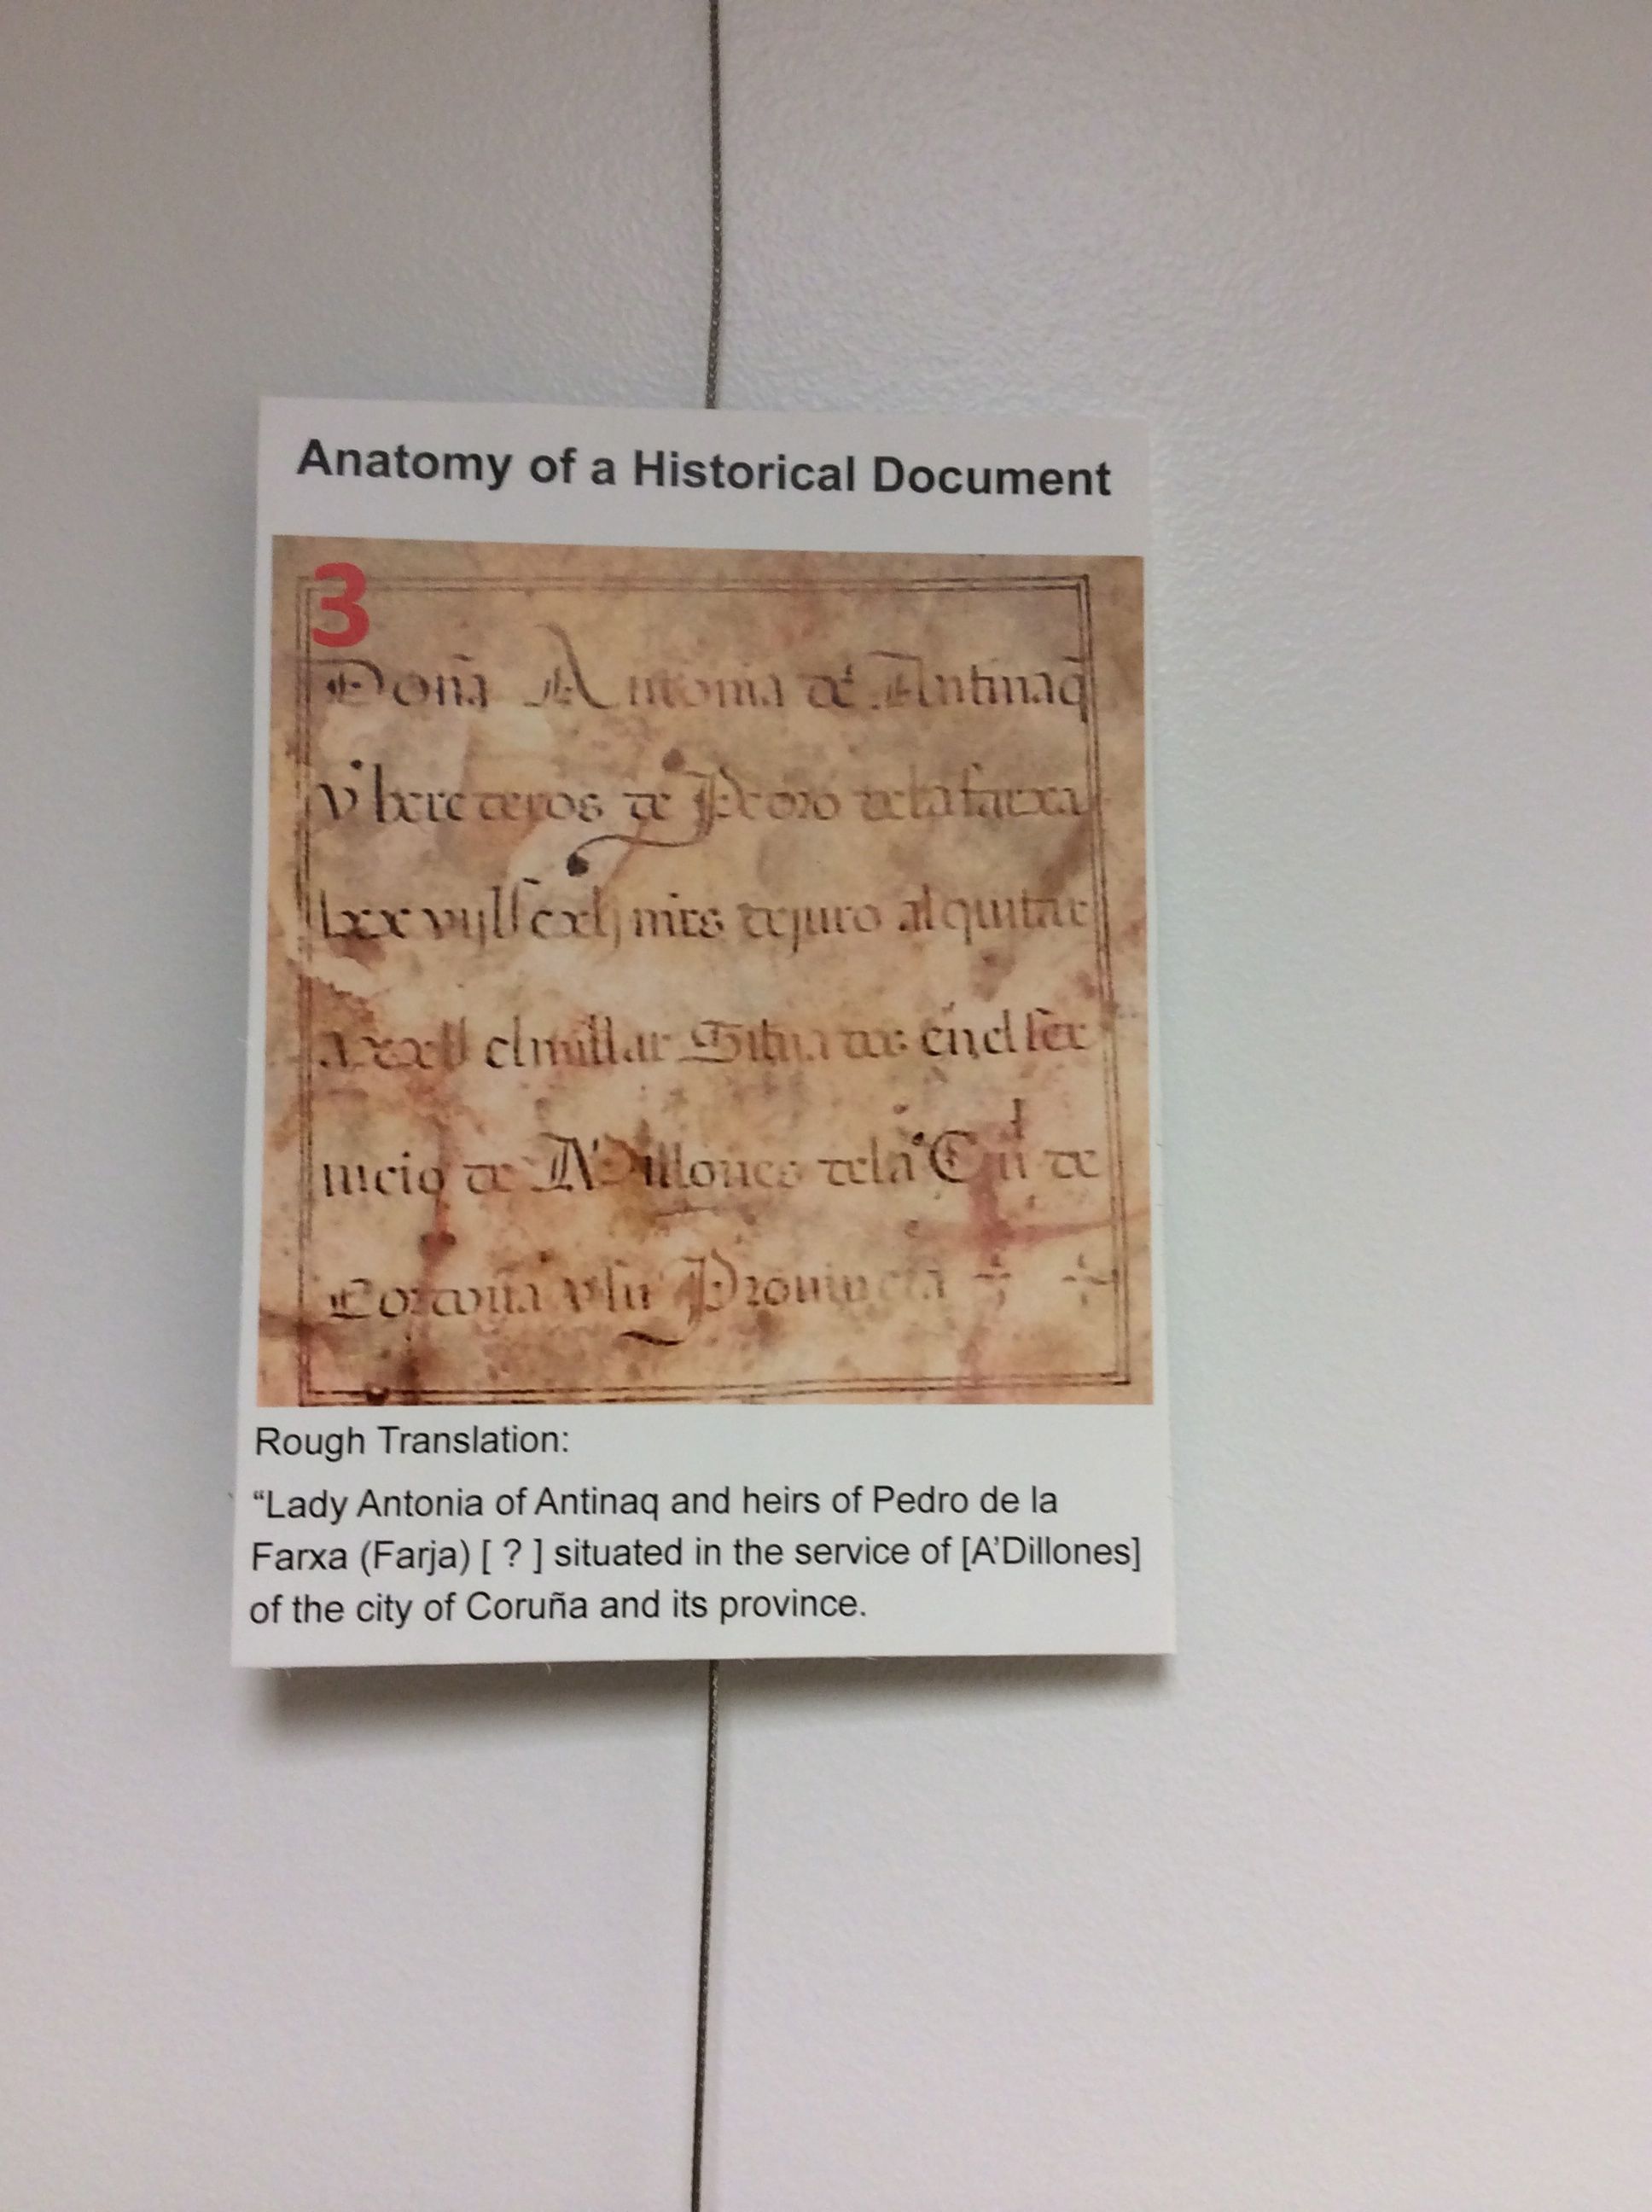 Anatomy of a Historical Document
3
Doña Antonia de Antinaq̃
y herederos de Pedro dela farxa
mrs de juro al quitar
el millar Situados en el ser
uicio de Millones dela Ciud de
y su Prouincia
Rough Translation:
“Lady Antonia of Antinaq and heirs of Pedro de la
Farxa (Farja) [ ? ] situated in the service of [A’Dillones]
of the city of Coruña and its province.